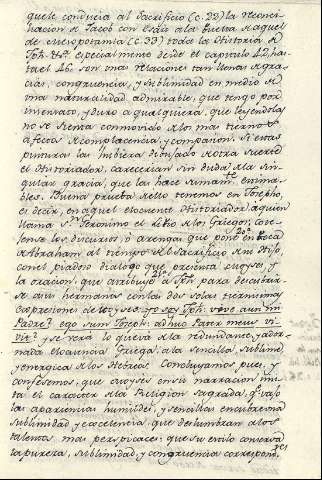 que le conducia al Sacrificio (c. 22) la reconci-
liacion de Jacob con Esau a la buelta de aquel
de Mesopotamia (c. 33) toda la Historia de
Jph. &c. especialmente desde el capitulo 42, has-
ta el 46. son unas relaciones tan llenas de gra-
cias, congruencia, y sublimidad en medio de
una naturalidad admirable, que tengo por
insensato, y duro a qualquiera, que leyendolas
no se sienta conmovido de los mas tiernos
afectos de complacencia, y compasion. Si estas
pinturas las hubiera dibujado de otra suerte
el Historiador, carecerian sin duda de la sin-
gular gracia, que las hace sumamte. estima-
bles. Buena prueba de ello tenemos en Josepho,
es decir, en aquel eloquente Historiador, a quien
llama S. Geronimo el Livio de los Griegos. Cote-
jense los discursos, o arengas que pone en boca
de Abraham al tiempo del Sacrificio de su Hijo,
con el piadoso dialogo que presenta Moyses, y
la oracion, que atribuye a Jph. para descubrir-
se a sus hermanos con las dos solas tiernisimas
expresiones de Moyses: yo soy Jph. vive aun mi
Padre? ego sum Joseph: adhuc Pater meus vi-
vit? y se verá lo que va de la redundante, y ador-
nada eloquencia Griega, a la sencilla, sublime,
y energica de los Hebreos. Concluyamos pues, y
confesemos, que Moyses en su narracion imi-
ta el caracter de la Religion sagrada, qe. vajo
las apariencias humildes, y sencillas encubre una
sublimidad y excelencia, que deslumbran a los
talentos mas perspicaces: que su estilo conserva
la pureza, sublimidad, y congruencia correspond.tes